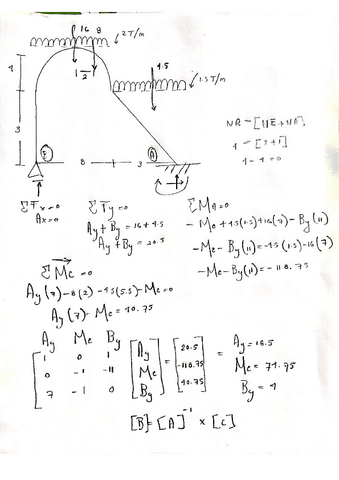 16 8
2 T/m
1
2
4
4.5
1.5 T/m
3
E
8
3
A
1 - 1 = 0
ΣFx=0
Ax=0
ΣFy=0
Ay + By = 16 + 4.5
Ay + By = 20.5
ΣMA=0
- Me + 4.5(1.5) + 16(7) - By(11)
- Me - By(11) = -4.5(1.5) - 16(7)
- Me - By(11) = - 118.75
ΣMc=0
Ay(7) - 8(2) - 4.5(5.5) - Me=0
Ay(7) - Me = 40.75
Ay Me By
1 0 1
0 -1 -11
7 -1 0
Ay
Me
By
=
20.5
-118.75
40.75
=
Ay = 16.5
Me = 74.75
By = 4
[B] = [A]⁻¹ x [C]